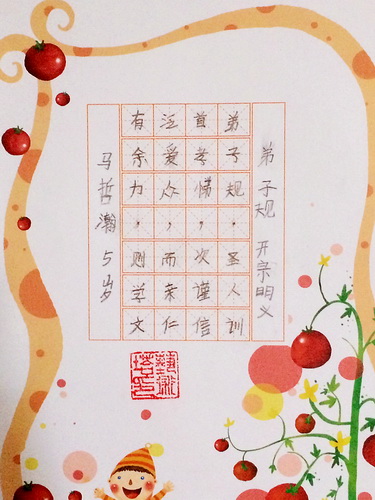 弟子规 开宗明义
弟子规，圣人训
首孝悌，次谨信
泛爱众，而亲仁
有余力，则学文
马哲瀚 5岁